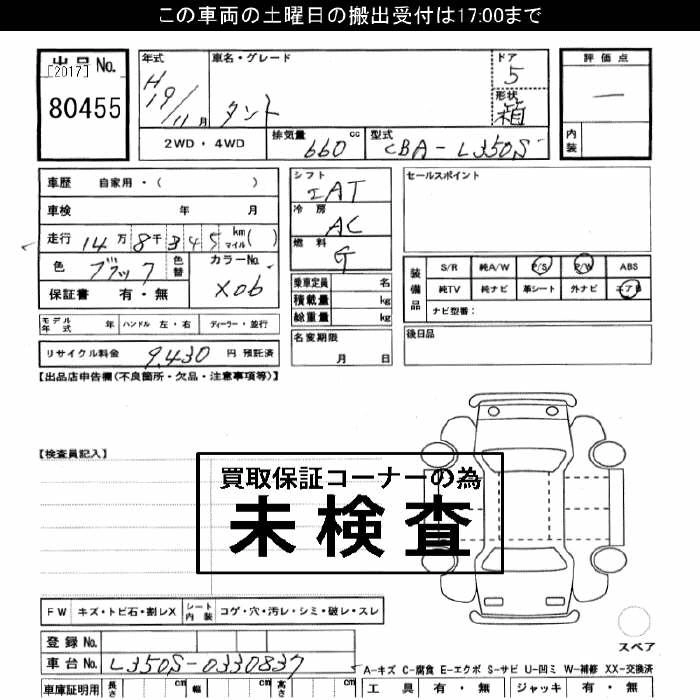 この車両の土曜日の搬出受付は17:00まで
出品No.
[2017]
80455
年式
H19/11月
車名・グレード
タント
ドア
5
形状
箱
評価点
ー
内装
2WD・4WD
排気量
660 cc
型式
CBA-L350S
車歴 自家用・( )
車検 年 月
走行 14万8千345 km マイル( )
色 ブラック 色替
カラーNo.
X06
保証書 有・無
シフト
IAT
冷房
AC
燃料
G
乗車定員 名
積載量 kg
総重量 kg
セールスポイント
装備品
S/R 純A/W P/S P/W ABS
純TV 純ナビ 革シート 外ナビ エアB
ナビ型番:
モデル年式 年 ハンドル 左・右 ディーラー・並行
名変期限
月 日
後日品
リサイクル料金 9,430 円 預託済
【出品店申告欄(不良箇所・欠品・注意事項等)】
【検査員記入】
買取保証コーナーの為
未検査
FW キズ・トビ石・割レX シート内装 コゲ・穴・汚レ・シミ・破レ・スレ
スペア
登録No.
車台No. L350S-0330837
A-キズ C-腐食 E-エクボ S-サビ U-凹ミ W-補修 XX-交換済
車庫証明用 長さ cm 幅 cm 高さ cm
工具 有・無 ジャッキ 有・無